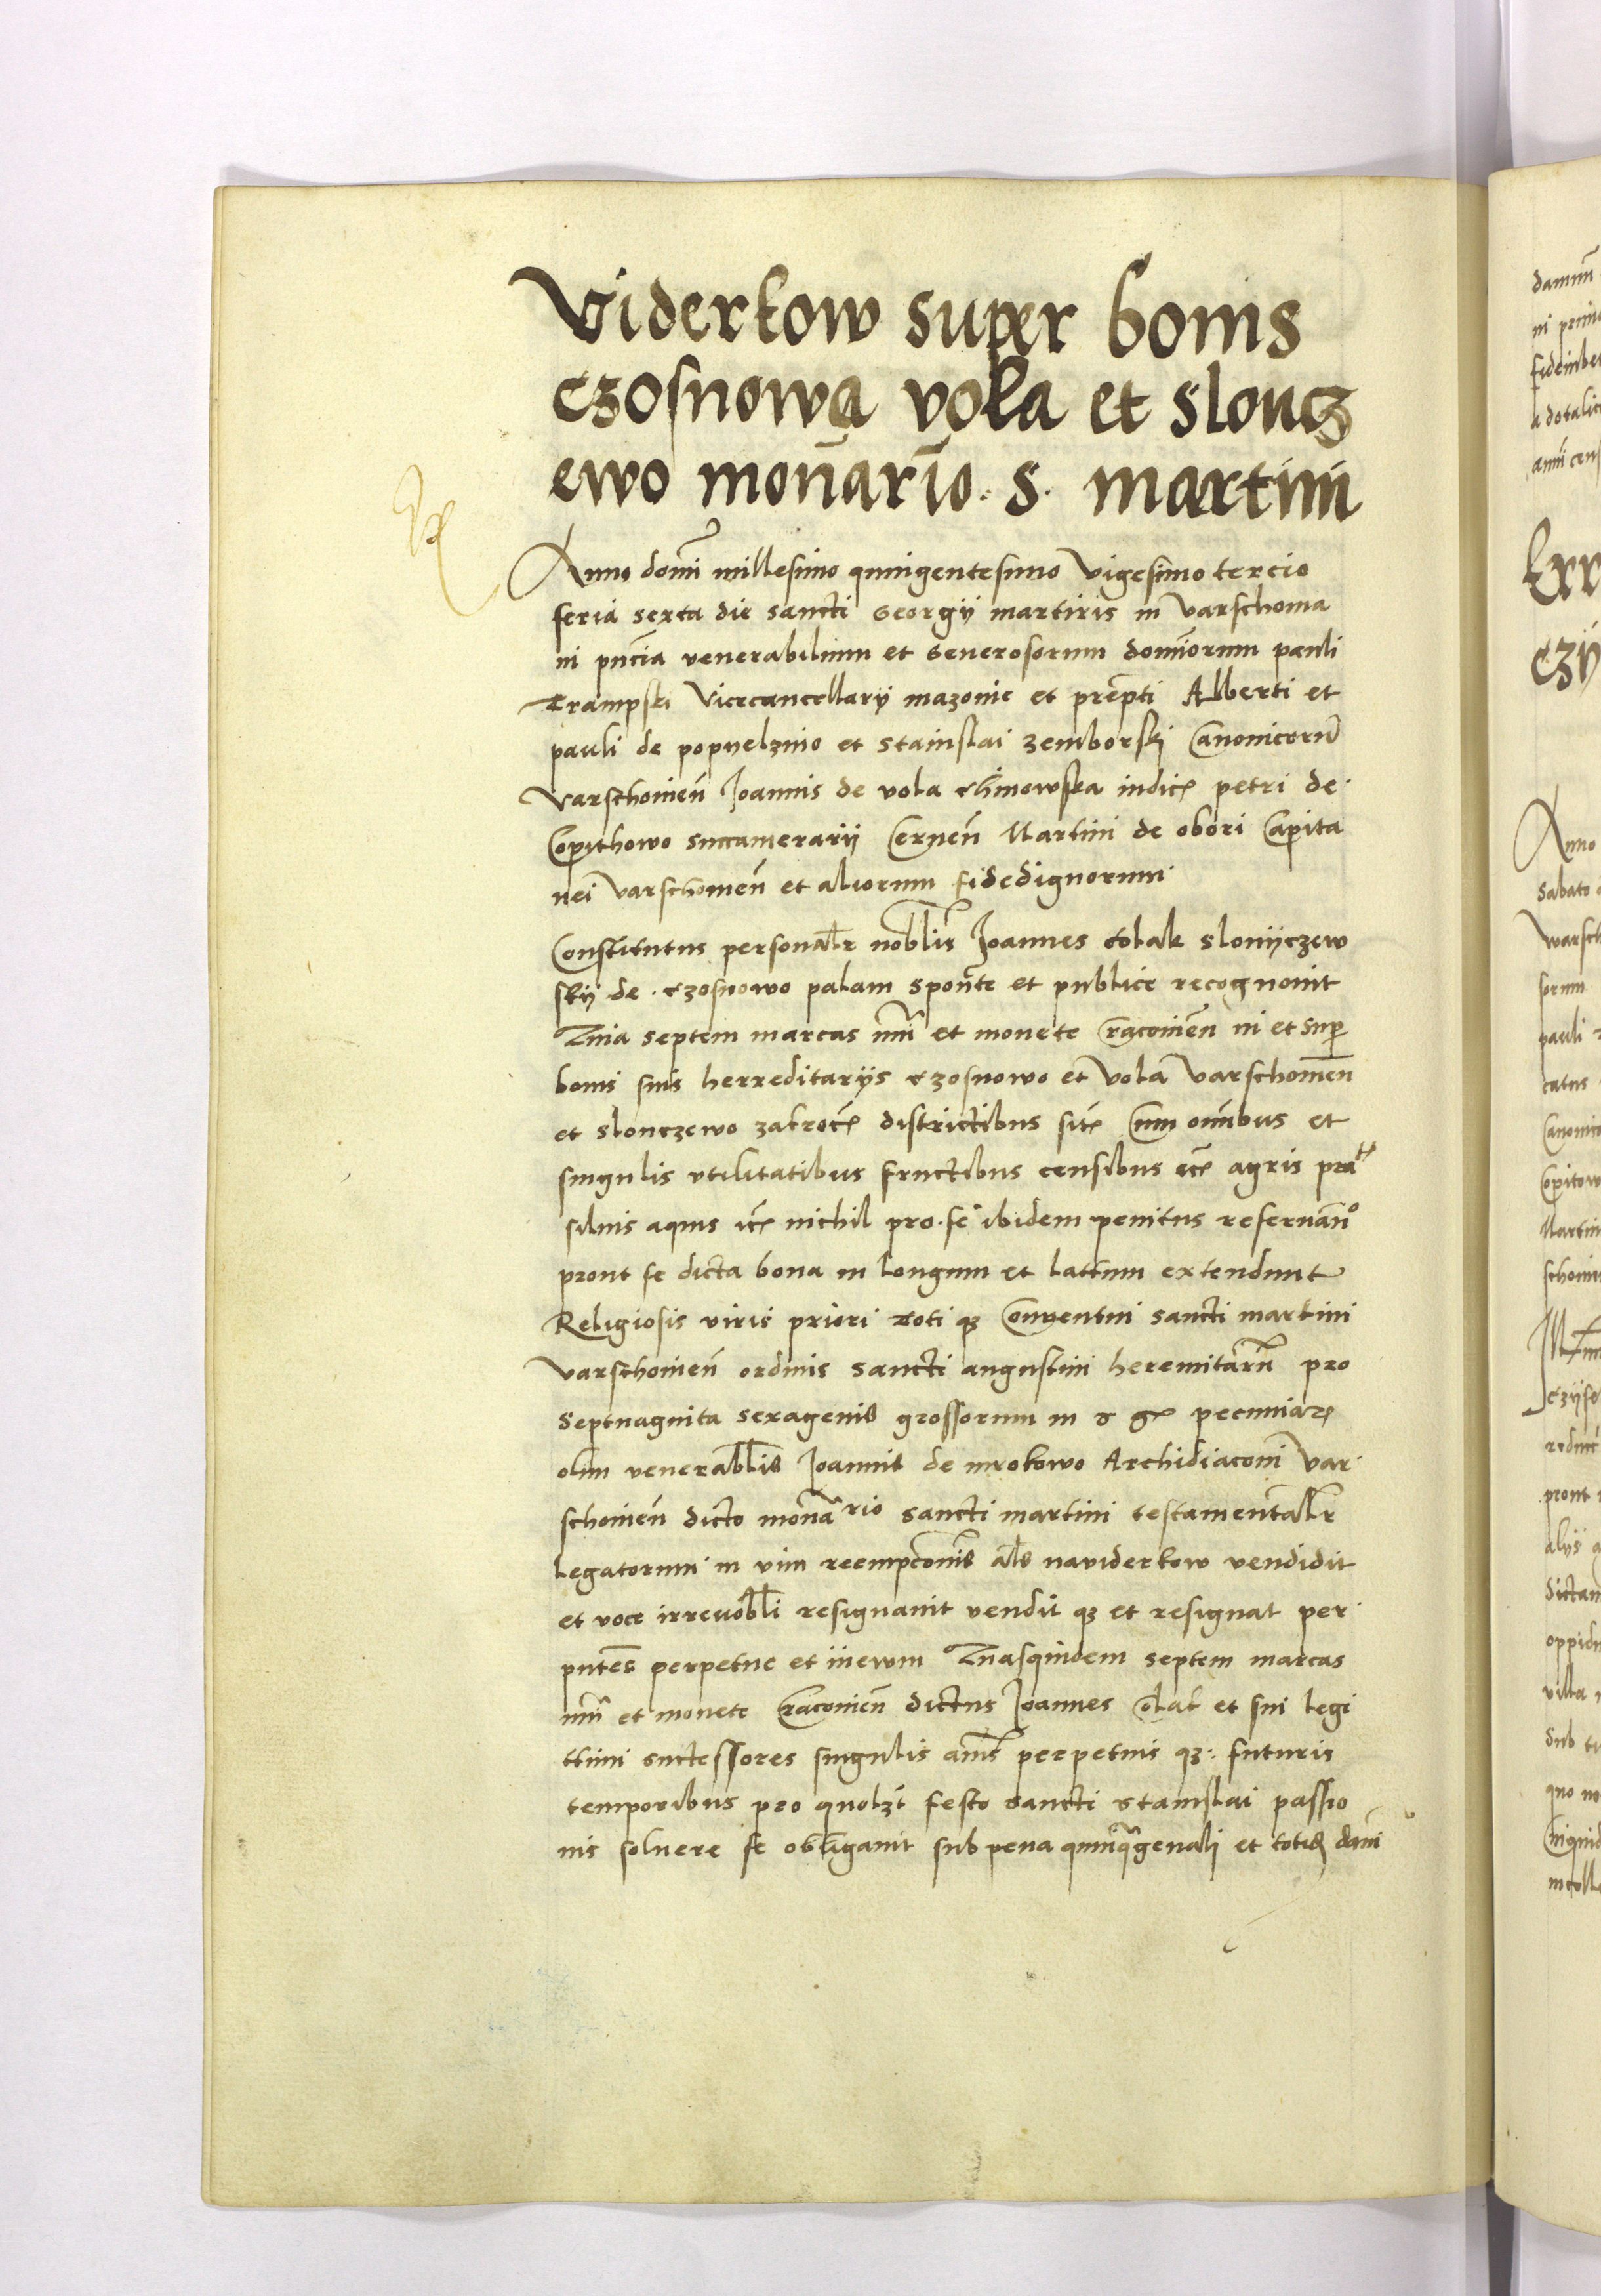 Viderkow super bonis
czosnowa vola et sloncz
ewo mon̄ario. s. martini
Anno domī millesimo quingentesimo Vigesimo tercio
feria sexta die sancti Georgij martiris in Varschouia
in pn̄cia venerabilium et Generosorum dominorum pauli
Trampski Vicecancellarij mazouie et prepti Alberti et
pauli de popyelznio et stanislai zemborski Canonicorū
Varschouien̄ Joannis de vola chinowska iudic̄ petri de
Copithowo succamerarij Cernen̄ Martini de obori Capita
nei Varschouien̄ et aliorum fidedignorum
Constitutus personalr̄ nobl̄is Joannes tolak slonyczew
skij de czosnowo palam sponte et publice recognouit
septem marcas num̄i et monete Cracouien̄ in et super
bonis suis herreditarijs czosnowo et vola Varschouien̄
et slonczewo zakroc̄ districtibus sit̄ Cum om̄ibus et
singulis vtilitatibus fructibus censibus etc̄ agris prat̄
siluis aquis etc̄ nichil pro se ibidem penitus referuan̄o
prout se dicta bona in longum et lattum extendunt
Religiosis viris priori toti qȝ Conuentui sancti martini
Varschouien̄ ordinis sancti augustini heremitarū pro
septuaginta sexagenis grossorum in t gͬ pecuniar̄
olim venerabl̄is Joannis de mrokowo Archidiaconi Var
schouien̄ dicto monario sancti martini testamentalr̄
legatorum in vim reempcōnis al̄s naviderkow vendidit
et voce irreuobl̄i resignauit vendit qȝ et resignat per
pn̄tes perpetue et in ewm Quasquidem septem marcas
num̄i et monete Cracouien̄ dictus Joannes Tolak et sui legi
ttimi suctessores singulis annis perpetuis qȝ futuris
temporibus pro quolzt̄ festo sancti stanislai passio
nis soluere se obligauit sub pena quinquagenali et totid̄ dam̄i